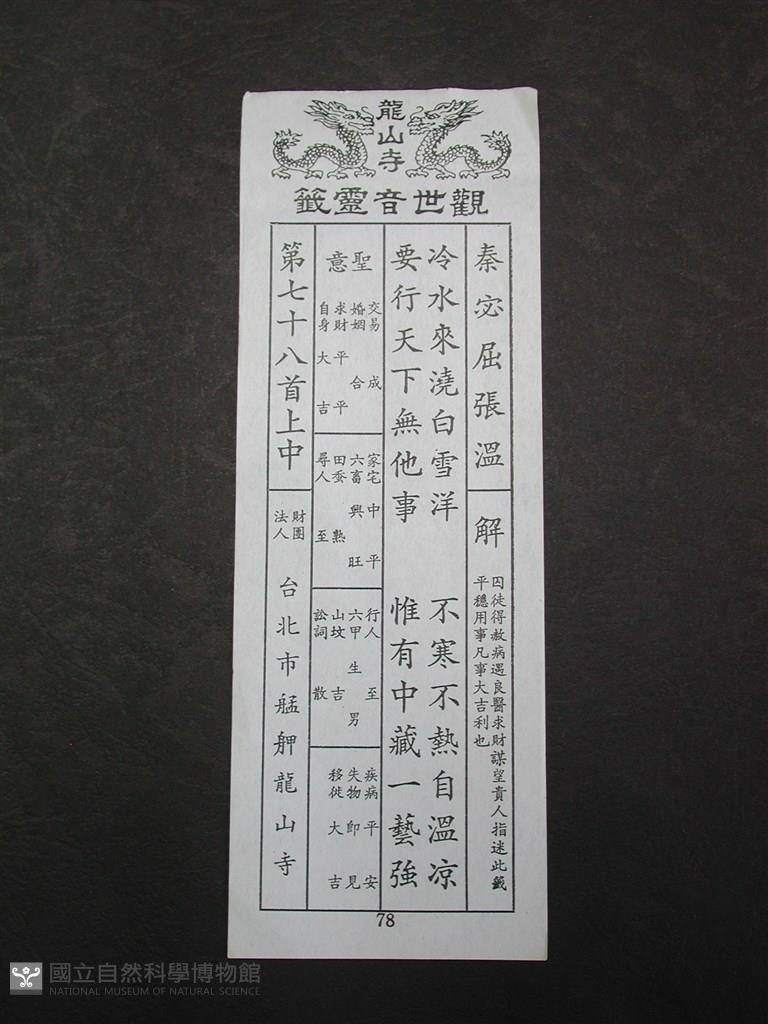 龍山寺
觀世音靈籤
秦宓屈張溫
解
囚徒得赦病遇良醫求財謀望貴人指迷此籤
平穩用事凡事大吉利也
冷水來澆白雪洋　不寒不熱自溫涼
要行天下無他事　惟有中藏一藝強
聖意
交易　成
婚姻　合
求財　平平
自身　大吉
家宅　中平
六畜　興旺
田蚕　熟
尋人　至
行人　至
六甲　生男
山坟　吉
訟詞　散
疾病　平安
失物　即見
移徙　大吉
第七十八首上中
財團
法人
台北市艋舺龍山寺
78
國立自然科學博物館
NATIONAL MUSEUM OF NATURAL SCIENCE